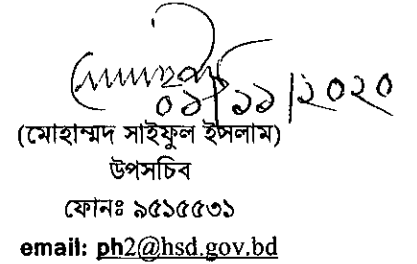 ০১/১১/২০২০
(মোহাম্মদ সাইফুল ইসলাম)
উপসচিব
ফোনঃ ৯৫১৫৫৩১
email: ph2@hsd.gov.bd